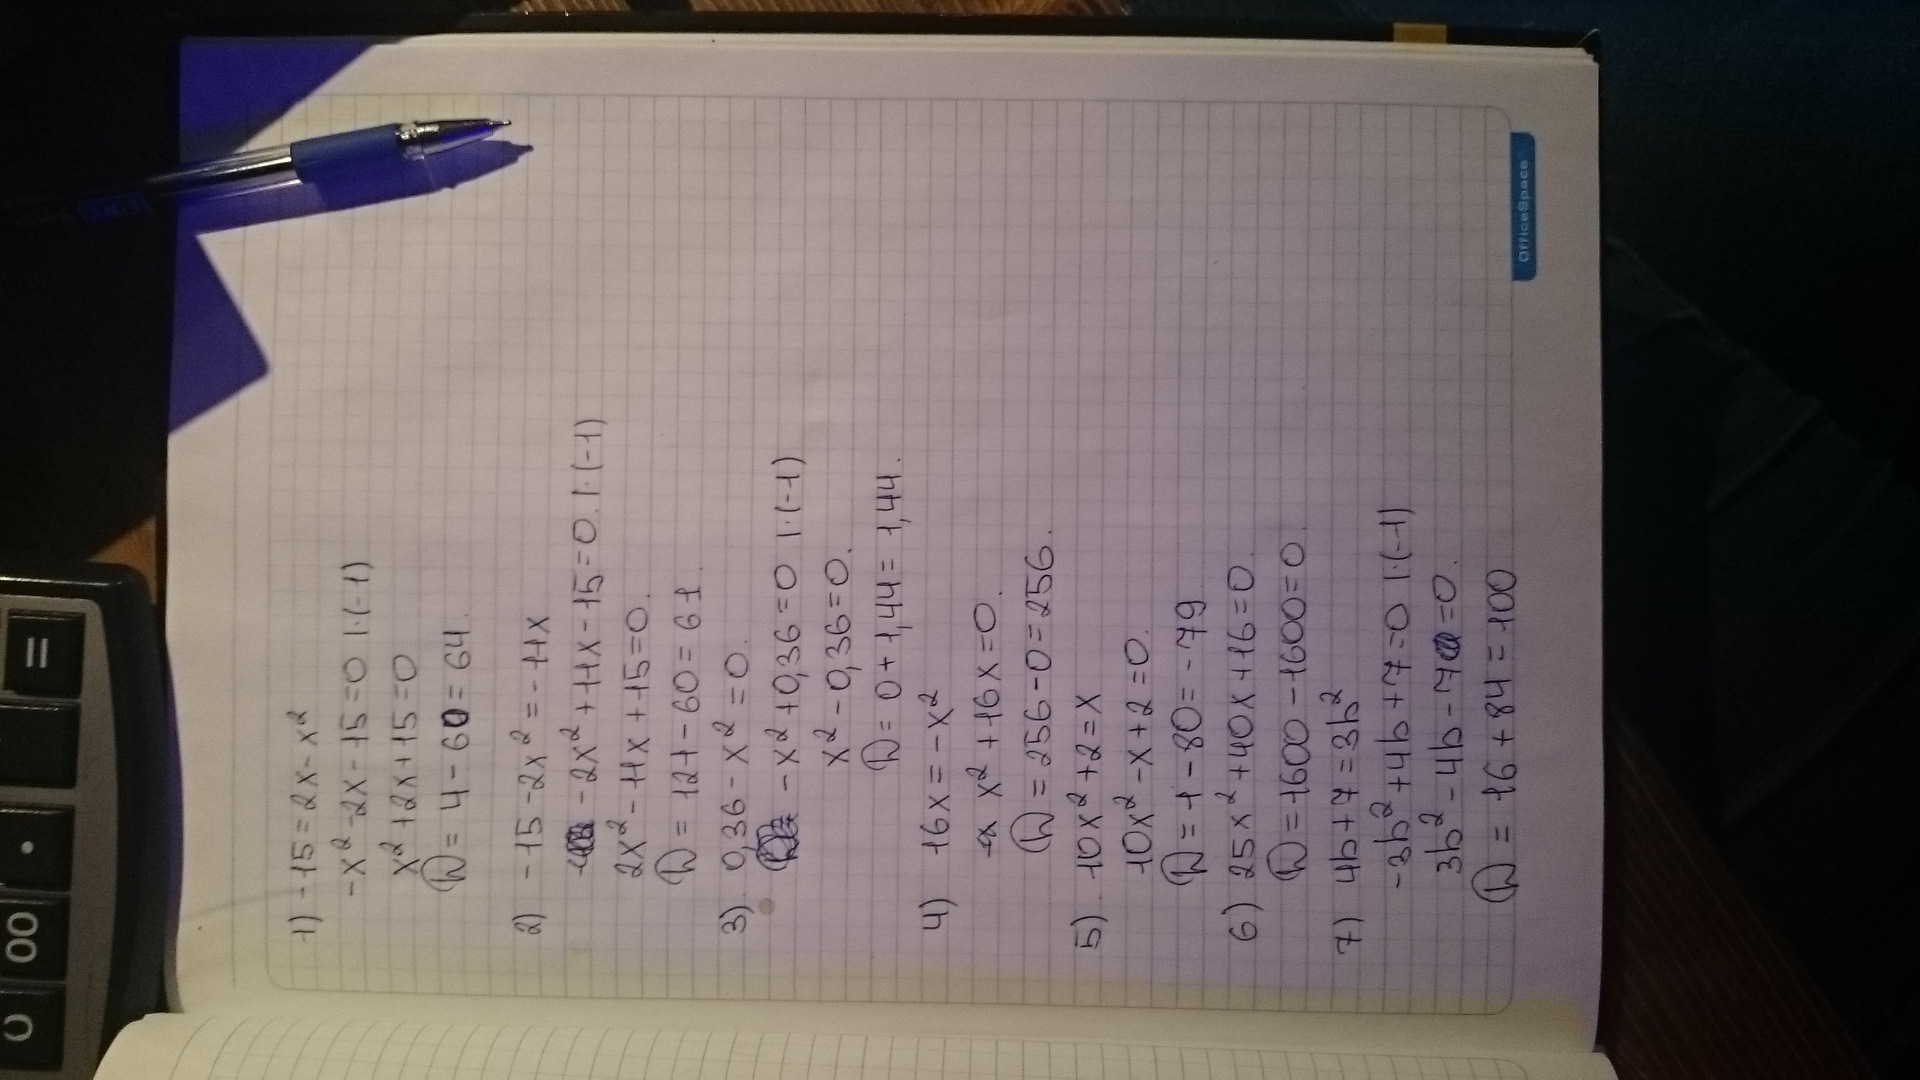 1) -15=2x-x²
-x²-2x-15=0 |·(-1)
x²+2x+15=0
D=4-60=64.
2) -15-2x²=-11x
-2x²+11x-15=0. |·(-1)
2x²-11x+15=0.
D=121-60=61.
3). 0,36-x²=0.
-x²+0,36=0 |·(-1)
x²-0,36=0.
D=0+1,44=1,44.
4) 16x=-x²
x²+16x=0.
D=256-0=256.
5). 10x²+2=x
10x²-x+2=0.
D=1-80=-79
6) 25x²+40x+16=0.
D=1600-1600=0.
7) 4b+7=3b²
-3b²+4b+7=0 |·(-1)
3b²-4b-7=0.
D=16+84=100
OfficeSpace
00
·
=